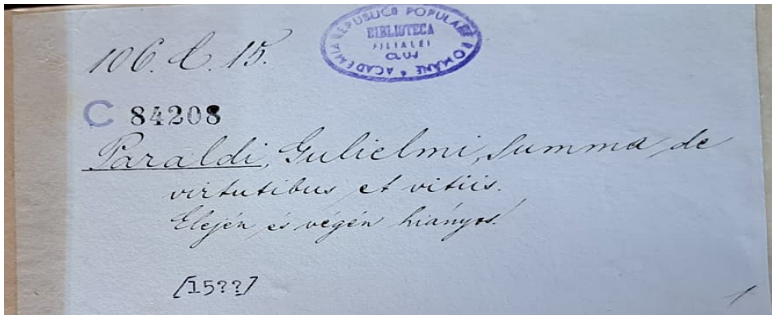 106. C. 15.
ACADEMIA REPUBLICII POPULARE ROMÂNE
BIBLIOTECA
FILIALEI
CLUJ
C 84208
Paraldi, Gulielmi, Summa de
virtutibus et vitiis.
Elején és végén hiányos!
[15??]
1